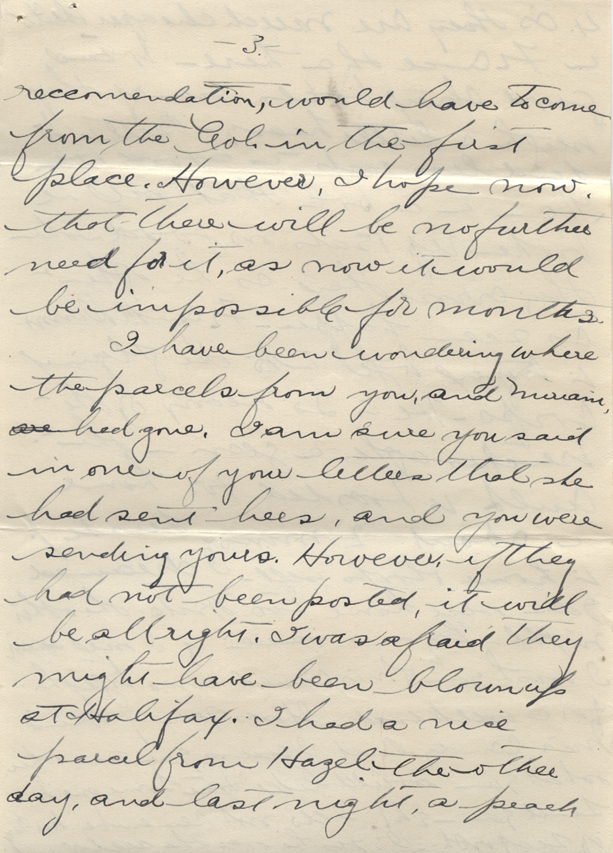 -3.-
reccomendation, would have to come
from the Col. in the first
place. However, I hope now.
that there will be no further
need for it, as now it would
be impossible for months.
I have been wondering where
the parcels from you, and Miriam,
had gone. I am sure you said
in one of your letters that she
had sent hers, and you were
sending yours. However, if they
had not been posted, it will
be all right. I was afraid they
might have been blown up
at Halifax. I had a nice
parcel from Hazel the other
day, and last night, a peach